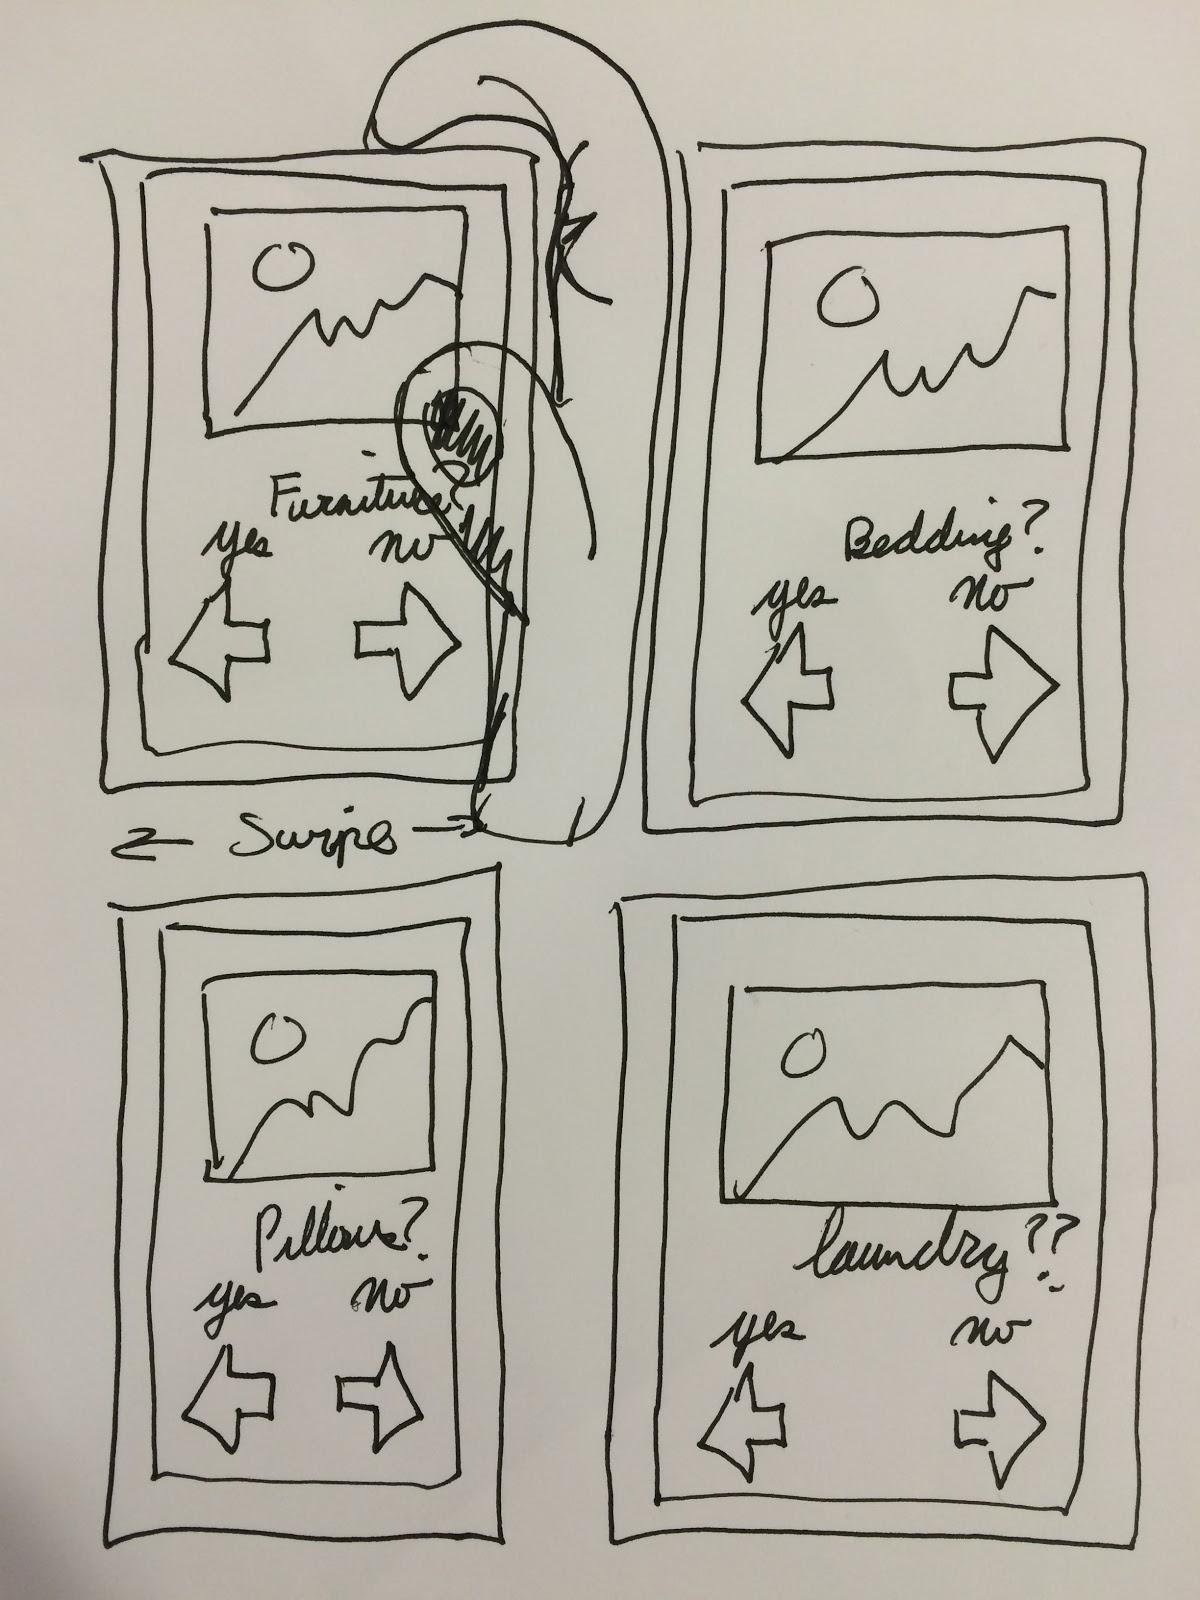 Furniture?
yes no
Bedding?
yes no
← Swipe →
Pillows?
yes no
laundry??
yes no